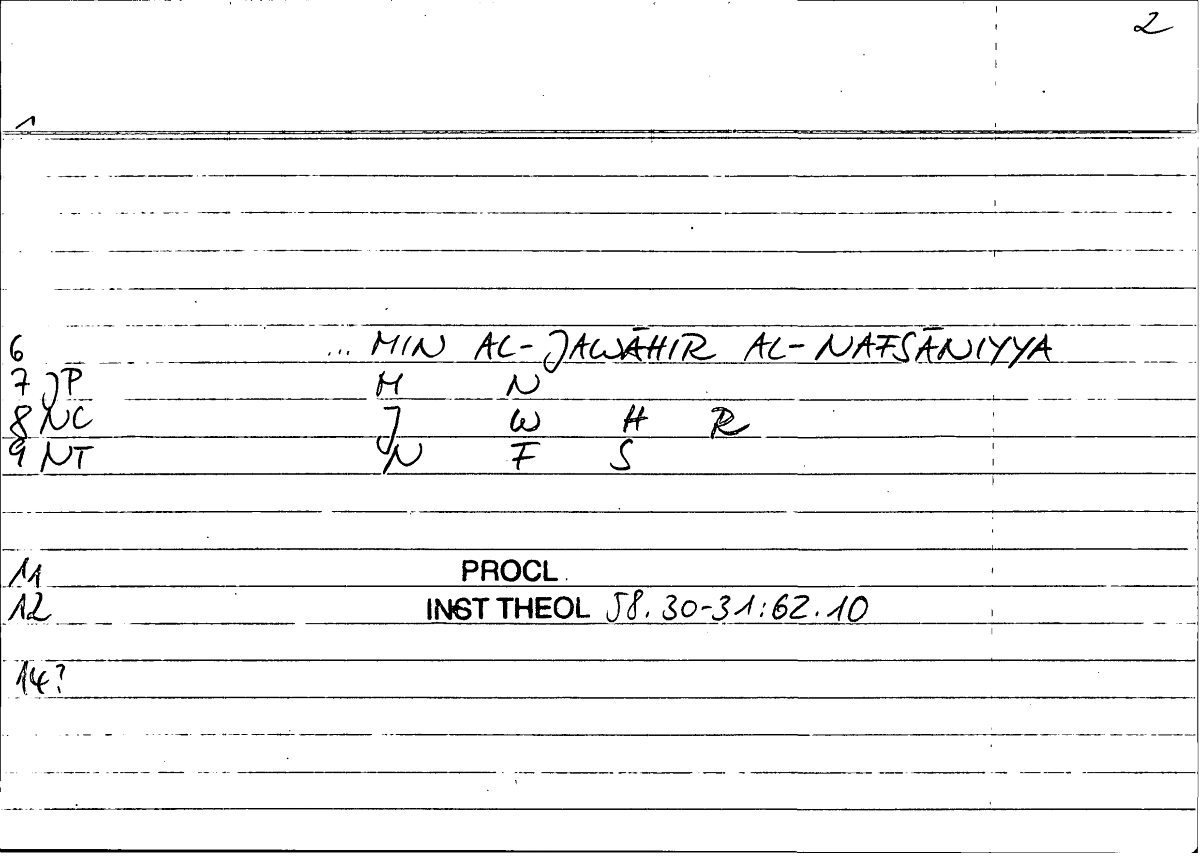 2
1
6 ... MIN AL-JAWĀHIR AL-NAFSĀNIYYA
7 JP M N
8 NC J W H R
9 NT N F S
11 PROCL.
12 INST THEOL 58.30-31:62.10
14?